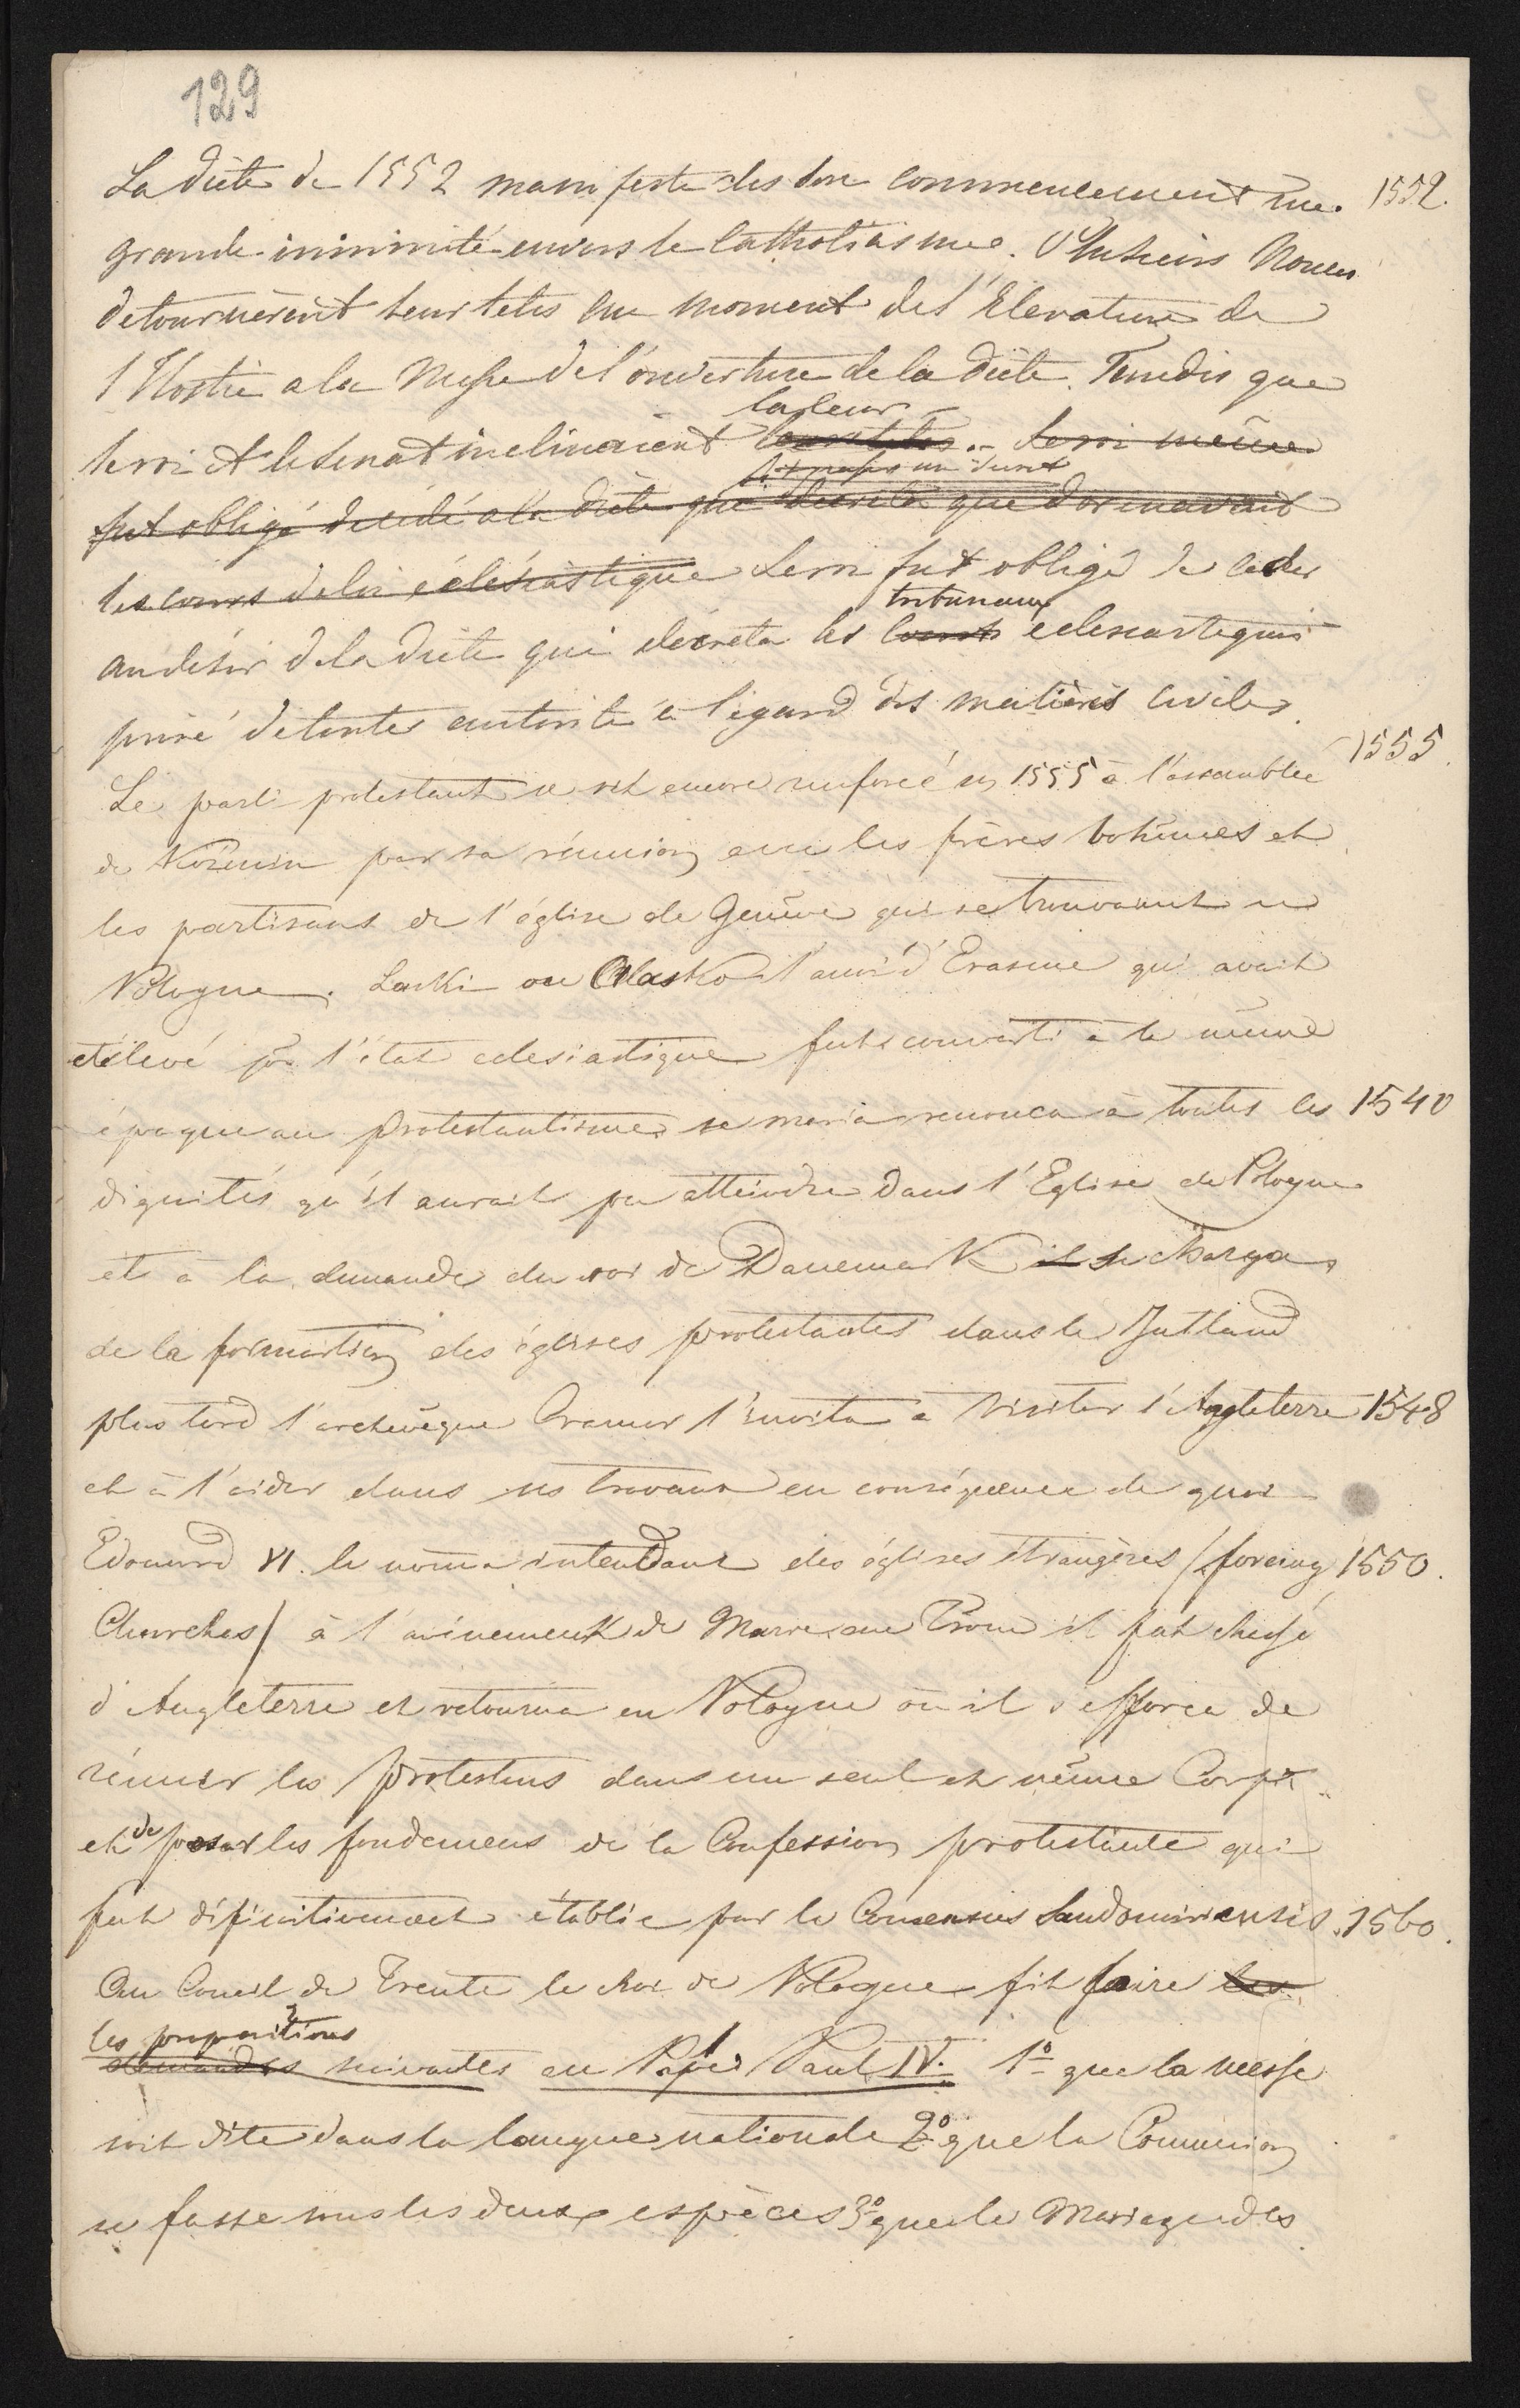 129
La diète de 1552 manifesta dès son commencement une 1552.
grande inimitié envers le Catholiasme. Plusieurs Nonces
detournèrent leur tetes au moment de l'Elevation de
l'Hostie a la Messe de l'ouverture de la diète. Tandis que
la leur
le roi et le senat inclinaient leurs têtes. Le roi même
fut obligé de cédé a la diète qui décréta que dorénavant
les cours de loi éclésiastique Le roi fut obligé de ceder
tribunaux
au desir de la diète qui décreta les cours eclesiastiques
privé de toute autorité à l'égard des matières civiles.
Le parti protestant se vit encore renforcé en 1555 à l'assemblée 1555.
de Kozmin par sa réunion avec les frères bohèmes et
les partisans de l'église de Genève qui se trouvaient en
Pologne. Laski ou Alasko l'ami d'Erasme qui avait
été levé pr l'état eclesiastique fut converti à la même
époque au protestantisme se maria renonca à toutes les 1540
dignités qu'il aurait pu atteindre dans l'Eglise de Pologne
et à la demande du roi de Danemark il se chargea
de la formation des églises protestantes dans le Jutland
plus tard l'archevêque Cranmer l'invita à visiter l'Angleterre 1548
et à l'aider dans ses travaux en conséquence de quoi
Edouard VI. le noma intendant des églises étrangères /foreing 1550.
Churches/ à l'avénement de Marie au Trone il fut chassé
d'Angleterre et retourna en Pologne où il s'efforca de
réunir les protestans dans un seul et même Corps
de
et poser les fondemens de la Confession protestante qui
fut définitivement établie par le Consensus Sandomiriensis. 1560.
Au Concil de Trente le Roi de Pologne fit faire les
les propositions
demandes suivantes au Pape Paul IV. 1o que la messe
soit dite dans la langue nationale 2o que la Communion
se fasse sous les deux espèces 3o que le Mariage des